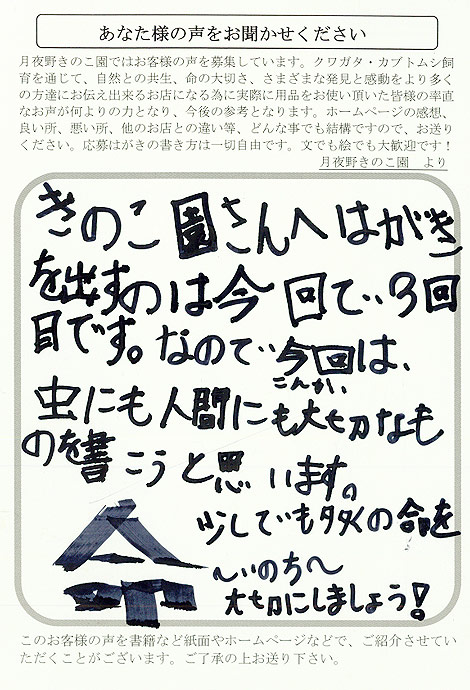 あなた様の声をお聞かせください
月夜野きのこ園ではお客様の声を募集しています。クワガタ・カブトムシ飼
育を通じて、自然との共生、命の大切さ、さまざまな発見と感動をより多く
の方達にお伝え出来るお店になる為に実際に用品をお使い頂いた皆様の率直
なお声が何よりの力となり、今後の参考となります。ホームページの感想、
良い所、悪い所、他のお店との違い等、どんな事でも結構ですので、お送り
ください。応募はがきの書き方は一切自由です。文でも絵でも大歓迎です！
月夜野きのこ園　より
きのこ園さんへはがき
を出すのは今回で、3回
目です。なので、今回は、
こんかい
虫にも人間にも大切なも
のを書こうと思います。
少しでも多くの命を
命
〜いのち〜
大切にしましょう！
このお客様の声を書籍など紙面やホームページなどで、ご紹介させてい
ただくことがございます。ご了承の上お送り下さい。